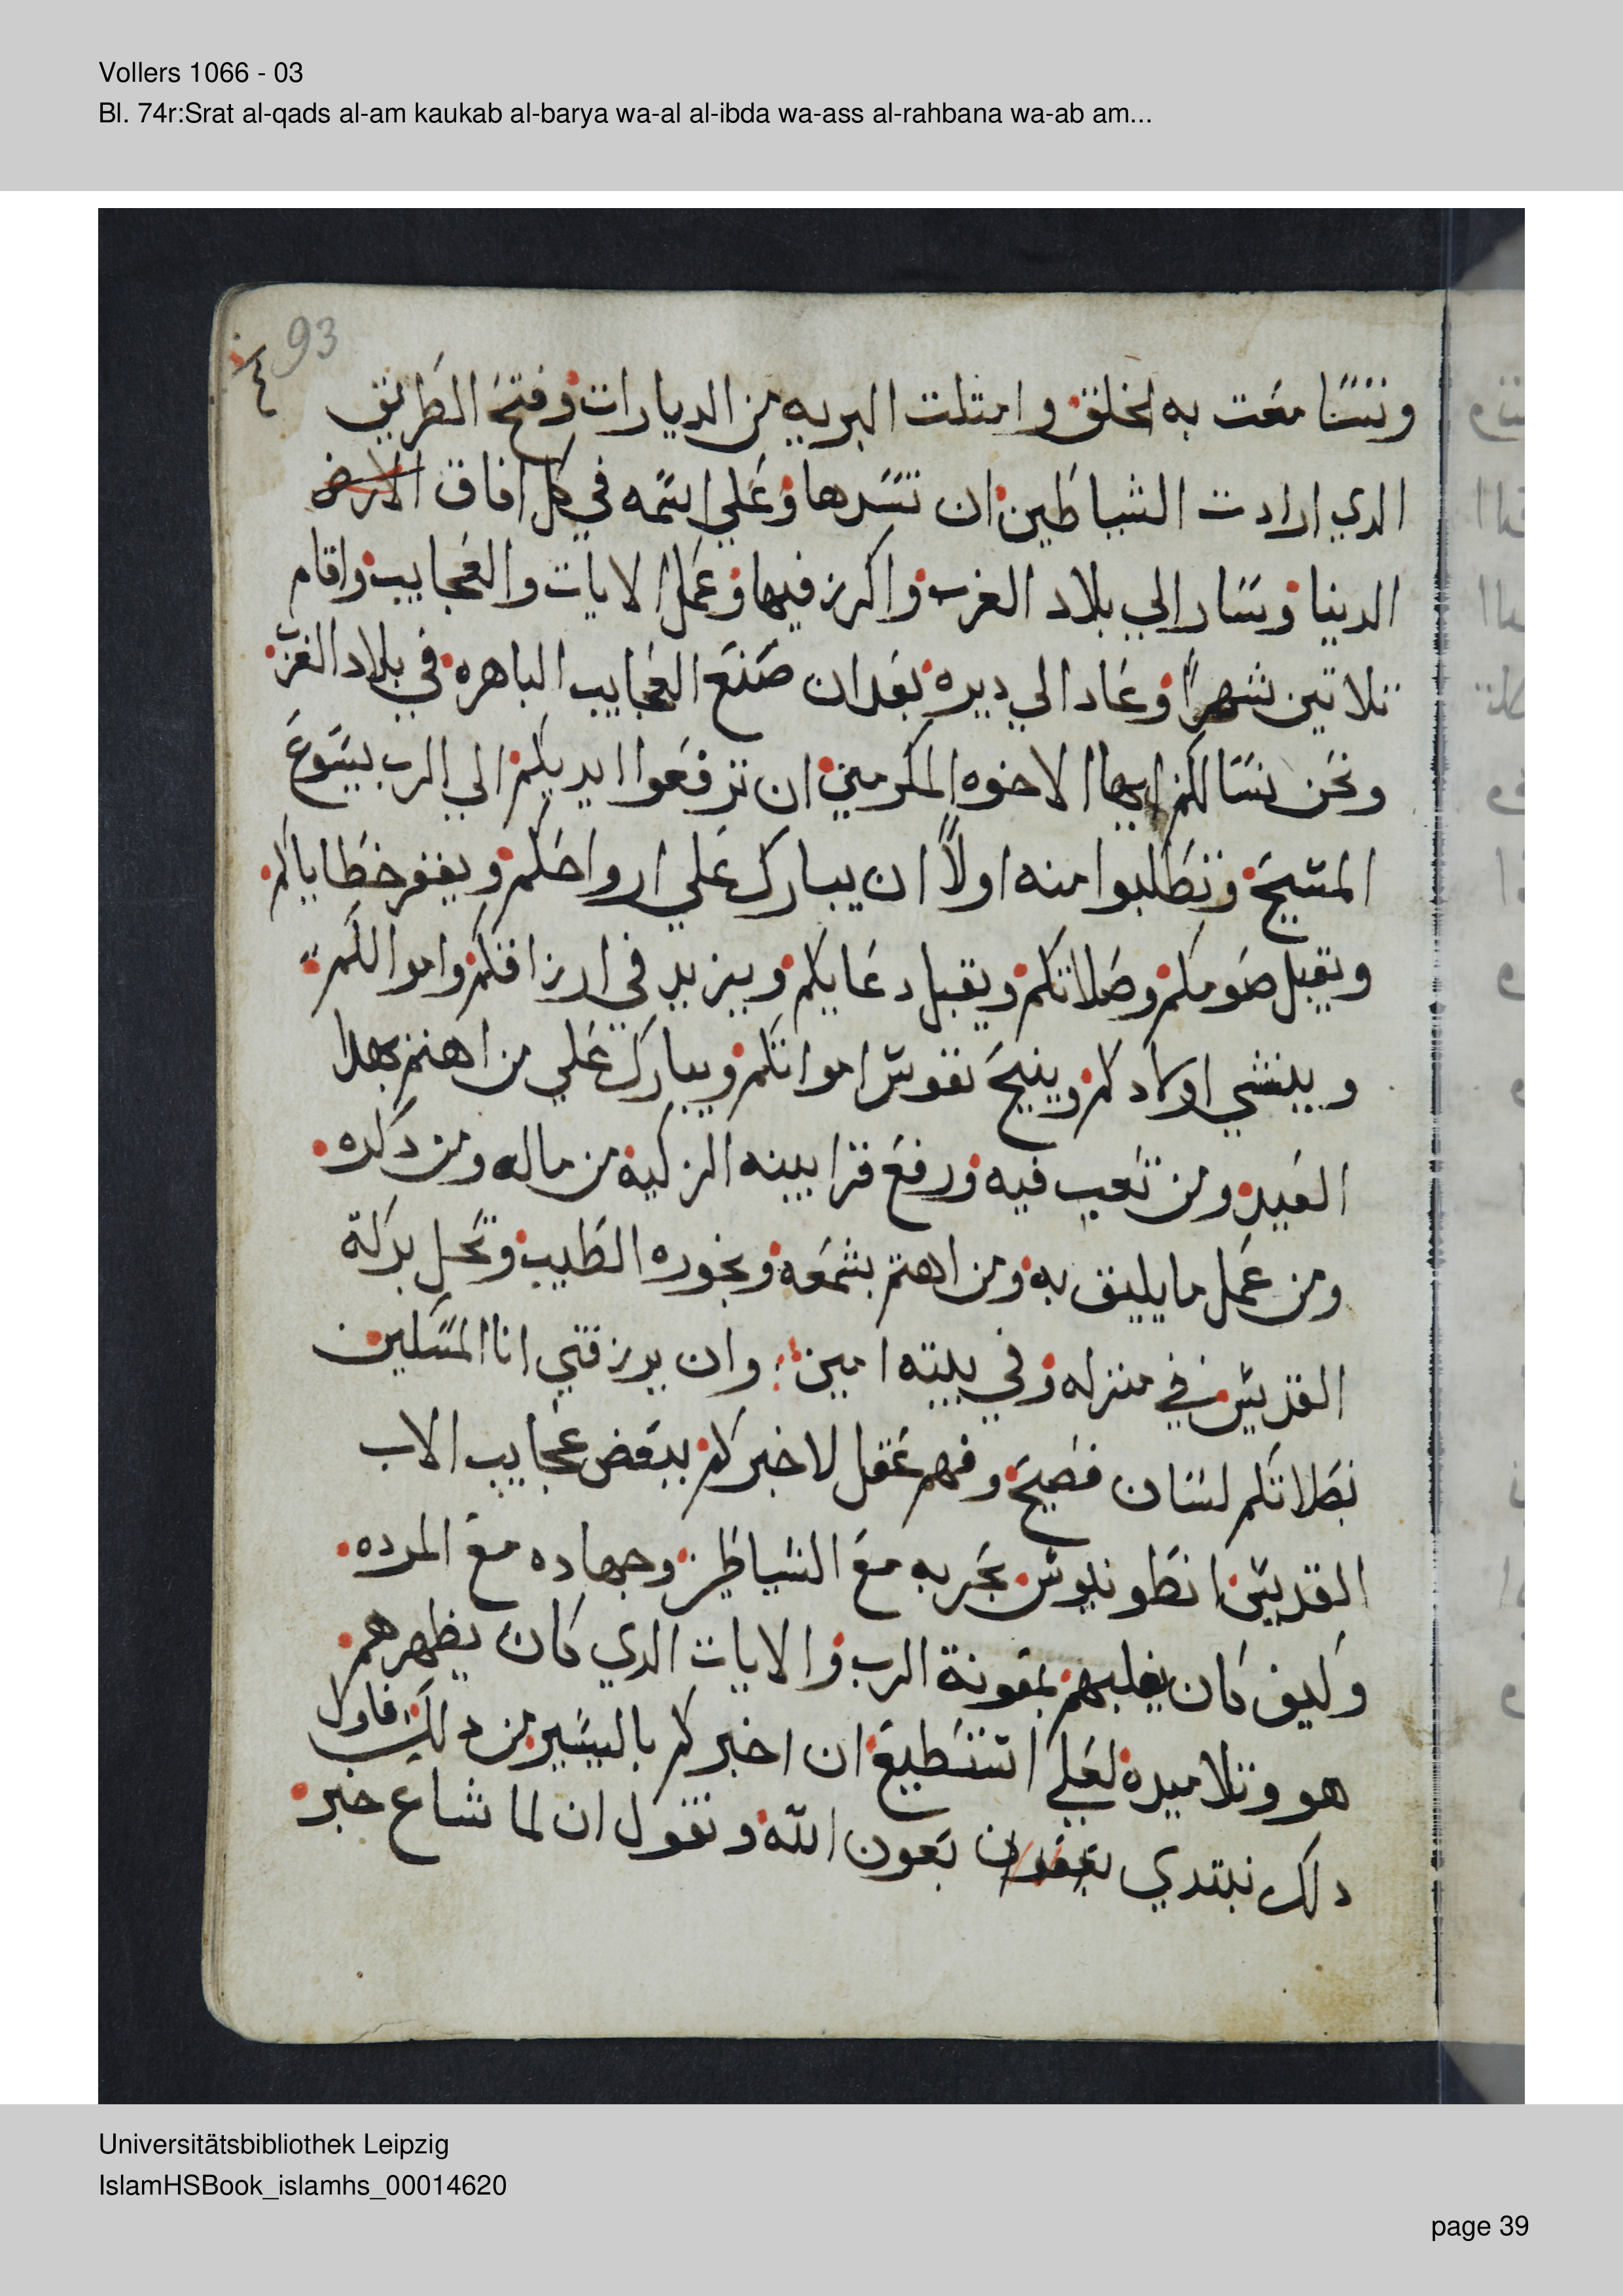 Vollers 1066 - 03
Bl. 74r:Srat al-qads al-am kaukab al-barya wa-al al-ibda wa-ass al-rahbana wa-ab am...
93
وتسامعت به الخلق وامتلت البريه من الديارات وفتح الطريق
الدي ارادت الشياطين ان تسدها وعلي اسمه في كل افاق الارض
الدينا وسار الي بلاد الغرب واكرز فيها وعمل الايات والعجايب واقام
تلاتين شهراً وعاد الي ديره بعد ان صنع العجايب الباهره في بلاد الغرب
ونحن نسالكم ايها الاخوه المكرمين ان ترفعوا ايديكم الي الرب يسوع
المسيح وتطلبوا منه اولاً ان يبارك علي ارواحكم ويغفر خطاياكم
ويقبل صومكم وصلاتكم ويقبل دعايكم ويزيد في ارزاقكم واموالكم
وينشي اولادكم وينيح نفوس امواتكم ويبارك علي من اهتم بهدا
العيد ومن تعب فيه ورفع قرابينه الزكية من ماله ومن دكره
ومن عمل ما يليق به ومن اهتم بشمعه وبخوره الطيب وتحل بركة
القديس في منزله وفي بيته امين وان يرزقني انا المسكين
بصلاتكم لسان فصيح وفهم عقل لاخبركم ببعض عجايب الاب
القديس انطونيوس بحربه مع الشياطين وجهاده مع المرده
وكيف كان يغلبهم بمعونة الرب والايات الدي كان يظهرهم
هو وتلاميده لعلي استطيع ان اخبركم باليسير من دلك فاول
دلك نبتدي بعون الله ونقول ان لما شاع خبر
Universitätsbibliothek Leipzig
IslamHSBook_islamhs_00014620
page 39